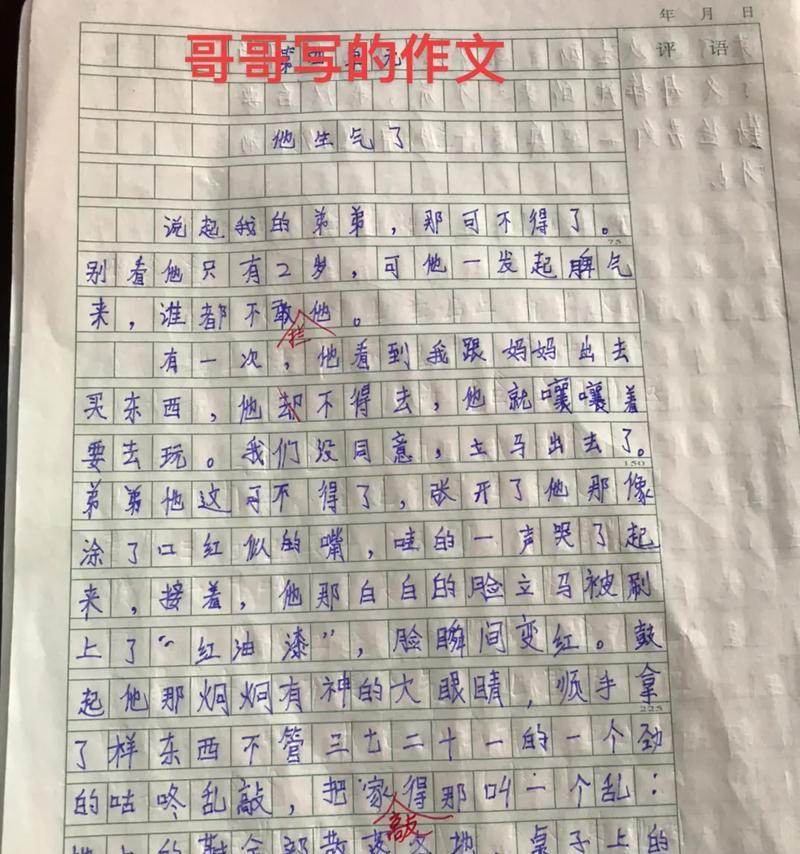 年 月 日
哥哥写的作文
评 语
他生气了
说起我的弟弟，那可不得了。
75
别看他只有2岁，可他一发起脾气
来，谁都不敢拦他。
有一次，他看到我跟妈妈出去
买东西，他却不得去，他就嚷嚷着
要去玩。我们没同意，立马出去了。
150
弟弟他这可不得了，张开了他那像
涂了口红似的嘴，哇的一声哭了起
来，接着，他那白白的脸立马被刷
上了“红油漆”，脸瞬间变红。鼓
起他那炯炯有神的大眼睛，顺手拿
225
了样东西不管三七二十一的一个劲
的咕咚乱敲，把家敲得那叫一个乱：
地上的鞋全部散落各地，桌子上的